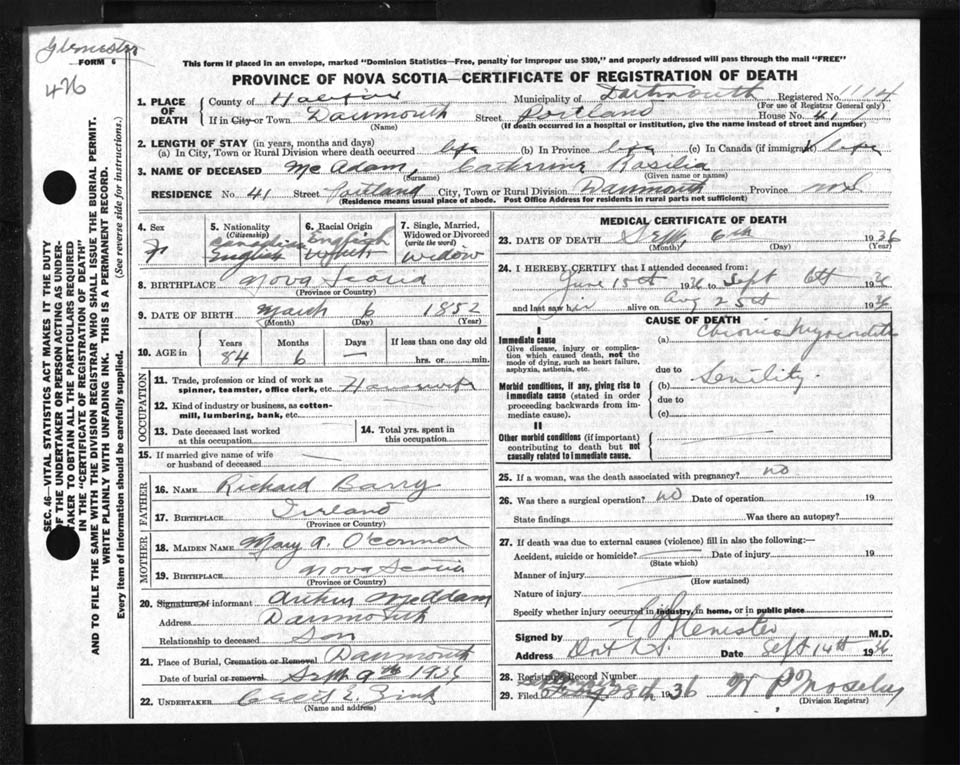 Glenister
FORM 6
426
This form if placed in an envelope, marked "Dominion Statistics—Free, penalty for improper use $300," and properly addressed will pass through the mail "FREE"
PROVINCE OF NOVA SCOTIA—CERTIFICATE OF REGISTRATION OF DEATH
1. PLACE OF DEATH
County of Halifax Municipality of Dartmouth Registered No. 1114
(For use of Registrar General only)
If in City or Town Dartmouth Street Portland House No. 41
(Name) (If death occurred in a hospital or institution, give the name instead of street and number)
2. LENGTH OF STAY (in years, months and days)
(a) In City, Town or Rural Division where death occurred life (b) In Province life (c) In Canada (if immigrant) life
3. NAME OF DECEASED McAdam, Catherine Basilia
(Surname) (Given name or names)
RESIDENCE No. 41 Street Portland City, Town or Rural Division Dartmouth Province N.S.
(Residence means usual place of abode. Post Office Address for residents in rural parts not sufficient)
4. Sex F
5. Nationality (Citizenship) Canadian English
6. Racial Origin English
7. Single, Married, Widowed or Divorced (write the word) Widow
8. BIRTHPLACE Nova Scotia
(Province or Country)
9. DATE OF BIRTH March 6 1852
(Month) (Day) (Year)
10. AGE in Years Months Days If less than one day old
84 6 — hrs. or min.
OCCUPATION
11. Trade, profession or kind of work as spinner, teamster, office clerk, etc. Housework
12. Kind of industry or business, as cotton-mill, lumbering, bank, etc.
13. Date deceased last worked at this occupation
14. Total yrs. spent in this occupation
15. If married give name of wife or husband of deceased
FATHER
16. NAME Richard Barry
17. BIRTHPLACE Ireland
(Province or Country)
MOTHER
18. MAIDEN NAME Mary A. O'Connor
19. BIRTHPLACE Nova Scotia
(Province or Country)
20. Signature of informant Arthur McAdam
Address Dartmouth
Relationship to deceased Son
21. Place of Burial, Cremation or Removal Dartmouth
Date of burial or removal Sept 9th 1936
22. UNDERTAKER E. Zink
(Name and address)
MEDICAL CERTIFICATE OF DEATH
23. DATE OF DEATH Sept. 6th 1936
(Month) (Day) (Year)
24. I HEREBY CERTIFY that I attended deceased from:
June 15th 1936 to Sept 6th 1936
and last saw her alive on Aug 25th 1936
CAUSE OF DEATH
I
Immediate cause
Give disease, injury or complication which caused death, not the mode of dying, such as heart failure, asphyxia, asthenia, etc.
(a) Chronic Myocarditis
due to
Morbid conditions, if any, giving rise to immediate cause (stated in order proceeding backwards from immediate cause).
(b) Senility.
due to
(c)
II
Other morbid conditions (if important) contributing to death but not causally related to immediate cause.
25. If a woman, was the death associated with pregnancy? no
26. Was there a surgical operation? no Date of operation 19
State findings Was there an autopsy?
27. If death was due to external causes (violence) fill in also the following:—
Accident, suicide or homicide? Date of injury 19
(State which)
Manner of injury
(How sustained)
Nature of injury
Specify whether injury occurred in industry, in home, or in public place
Signed by Glenister M.D.
Address Dart N.S. Date Sept 14th 1936
28. Registrar's Record Number
29. Filed 1936 W P Moseley
(Division Registrar)
SEC. 46—VITAL STATISTICS ACT MAKES IT THE DUTY
OF THE UNDERTAKER OR PERSON ACTING AS UNDER-
TAKER TO OBTAIN ALL THE PARTICULARS REQUIRED
IN THE "CERTIFICATE OF REGISTRATION OF DEATH"
AND TO FILE THE SAME WITH THE DIVISION REGISTRAR WHO SHALL ISSUE THE BURIAL PERMIT.
WRITE PLAINLY WITH UNFADING INK. THIS IS A PERMANENT RECORD.
Every item of information should be carefully supplied. (See reverse side for instructions.)